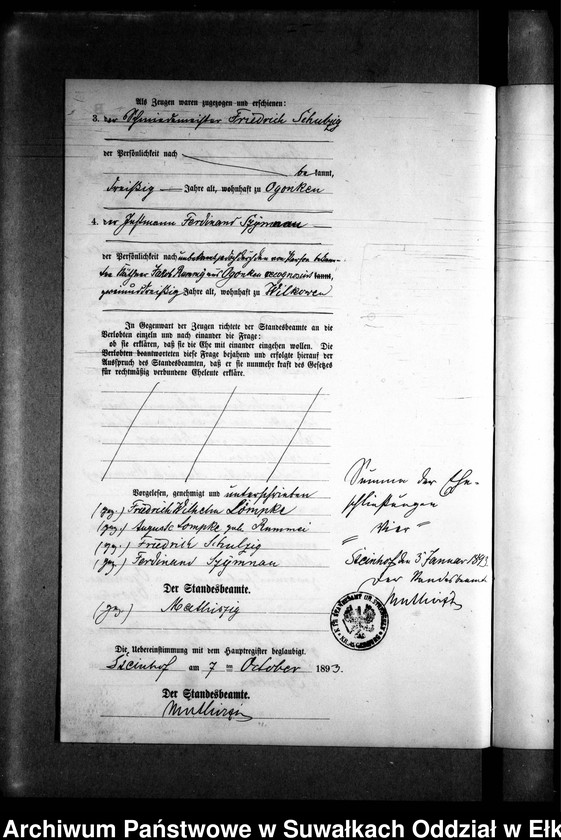 Als Zeugen waren zugezogen und erschienen:
3. der Schmiedemeister Friedrich Schulzig
der Persönlichkeit nach
be kannt,
dreißig Jahre alt, wohnhaft zu Ogonken
4. der Instmann Ferdinand Szÿmnau
der Persönlichkeit nach unbekannt, jedoch durch den von Person bekann-
ten Käthner aus Ogonken recognoscirt kannt,
zweiunddreißig Jahre alt, wohnhaft zu Wilkowen
In Gegenwart der Zeugen richtete der Standesbeamte an die
Verlobten einzeln und nach einander die Frage:
ob sie erklären, daß sie die Ehe mit einander eingehen wollen. Die
Verlobten beantworteten diese Frage bejahend und erfolgte hierauf der
Ausspruch des Standesbeamten, daß er sie nunmehr kraft des Gesetzes
für rechtmäßig verbundene Eheleute erkläre.
Vorgelesen, genehmigt und unterschrieben
(gez.) Friedrich Wilhelm Lömpke
(gez.) Auguste Lompke geb. Rammei
(gez.) Friedrich Schulzig
(gez.) Ferdinand Szÿmnau
Der Standesbeamte.
(gez.) Mathiszig
Die Uebereinstimmung mit dem Hauptregister beglaubigt.
Steinhof am 7 ten October 1893.
Der Standesbeamte.
Mathiszig
Summa der Ehe-
schließungen
"Vier"
Steinhof, den 3 Januar 1893
Der Standesbeamte
Mathiszig
Archiwum Państwowe w Suwałkach Oddział w Ełk